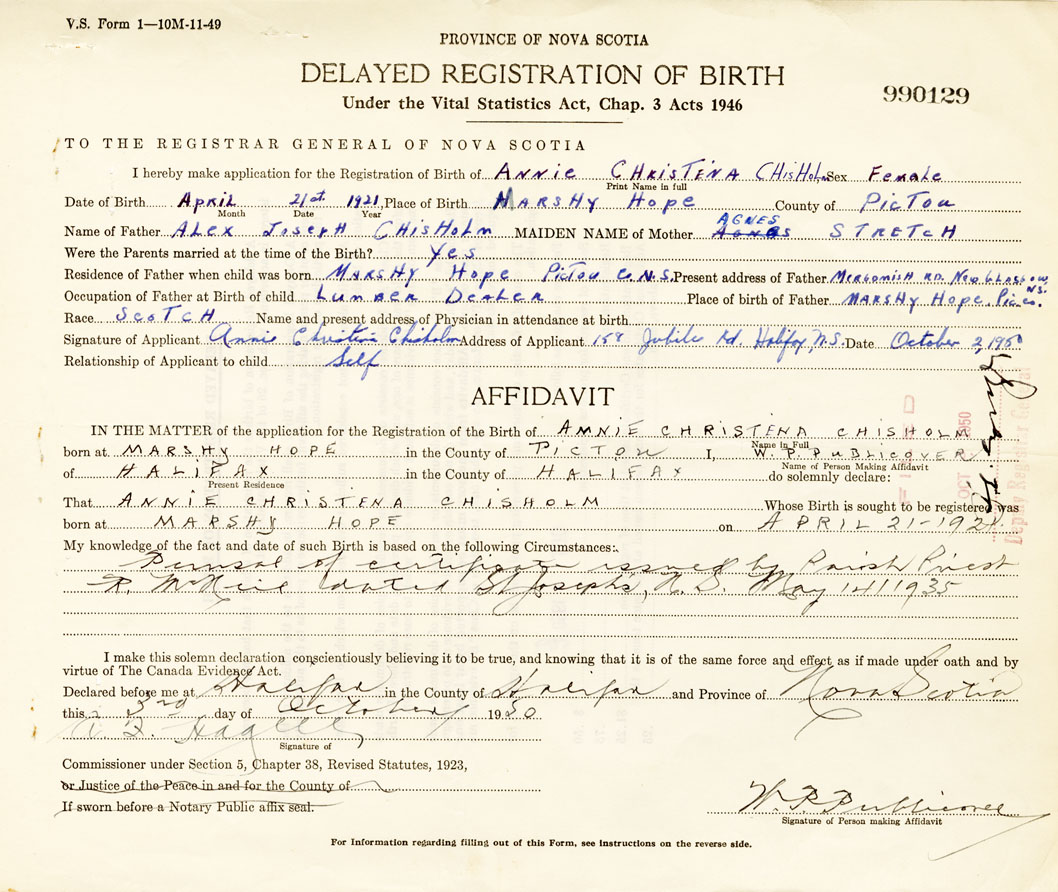 V.S. Form 1—10M-11-49
PROVINCE OF NOVA SCOTIA
DELAYED REGISTRATION OF BIRTH
Under the Vital Statistics Act, Chap. 3 Acts 1946
990129
TO THE REGISTRAR GENERAL OF NOVA SCOTIA
I hereby make application for the Registration of Birth of ANNIE CHRISTENA CHISHOLM Sex Female
Print Name in full
Date of Birth APRIL 21st 1921, Place of Birth MARSHY HOPE County of PICTOU
Month Date Year
AGNES
Name of Father ALEX JOSEPH CHISHOLM MAIDEN NAME of Mother AGNES STRETCH
Were the Parents married at the time of the Birth? Yes
Residence of Father when child was born MARSHY HOPE PICTOU C. N.S. Present address of Father MERGOMISH RD. NEW GLASGOW N.S.
Occupation of Father at Birth of child LUMBER DEALER Place of birth of Father MARSHY HOPE. PIC. CO.
Race SCOTCH Name and present address of Physician in attendance at birth
Signature of Applicant Annie Christina Chisholm Address of Applicant 158 Jubilee Rd. Halifax, N.S. Date October 2, 1950
Relationship of Applicant to child Self
AFFIDAVIT
IN THE MATTER of the application for the Registration of the Birth of ANNIE CHRISTENA CHISHOLM
Name in Full
born at MARSHY HOPE in the County of PICTOU I, W. P. PUBLICOVER
Name of Person Making Affidavit
of HALIFAX in the County of HALIFAX do solemnly declare:
Present Residence
That ANNIE CHRISTENA CHISHOLM Whose Birth is sought to be registered was
born at MARSHY HOPE on APRIL 21-1921.
OCT 1950
Deputy Registrar General
My knowledge of the fact and date of such Birth is based on the following Circumstances:
Perusal of certificate issued by Parish Priest
R. McNeil dated St Josephs, N.S. May 14/1935
I make this solemn declaration conscientiously believing it to be true, and knowing that it is of the same force and effect as if made under oath and by
virtue of The Canada Evidence Act.
Declared before me at Halifax in the County of Halifax and Province of Nova Scotia
this 3rd day of October 1950
Signature of
Commissioner under Section 5, Chapter 38, Revised Statutes, 1923,
or Justice of the Peace in and for the County of
If sworn before a Notary Public affix seal.
W. P. Publicover
Signature of Person making Affidavit
For Information regarding filling out of this Form, see instructions on the reverse side.